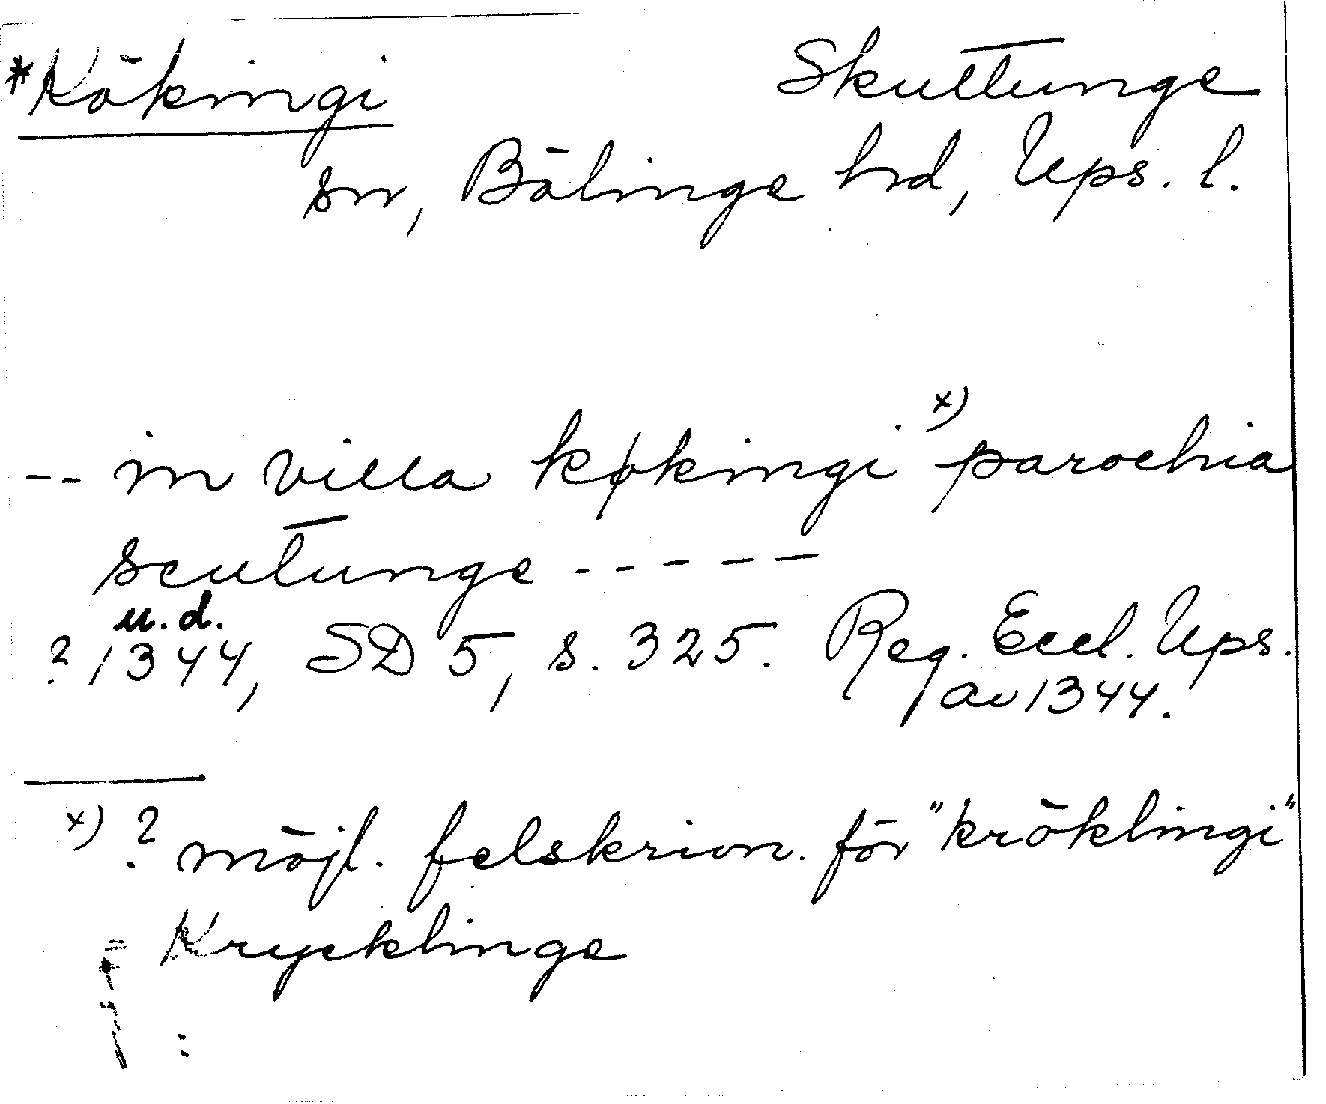 *Kökingi Skuttunge
sn, Bälinge hd, Ups. l.
-- in villa køkingi x) parochia
scutunge -----
u.d.
? 1344, SD 5, s. 325. Reg. Eccl. Ups.
av 1344.
x) ? möjl. felskrivn. för "kröklingi"
= Krycklinge